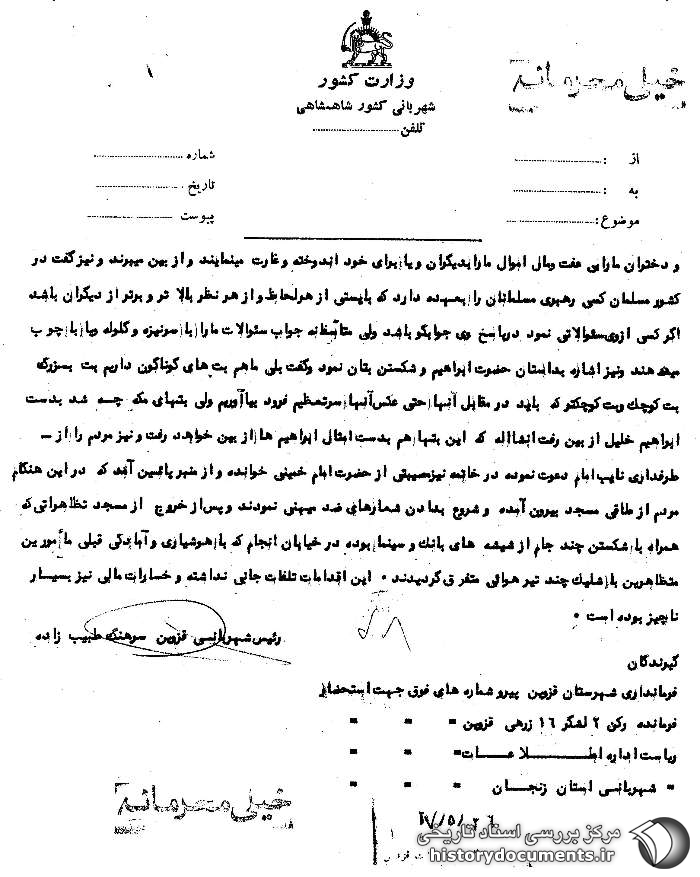 خیلی محرمانه
وزارت کشور
شهربانی کشور شاهنشاهی
تلفن
از :
به :
موضوع :
شماره
تاریخ
پیوست
و دختران مارابی عفت ومال اموال مارابدیگران و یابرای خود اندوخته وغارت مینمایند و از بین میبرند و نیز گفت در
کشور مسلمان کسی رهبری مسلمانان را بعهده دارد که بایستی از هر لحاظ و از هر نظر بالا تر و برتر از دیگران باشد
اگر کسی ازوی سئوالاتی نمود درپاسخ وی جوابگو باشد ولی متأسفانه جواب سئوالات مارا باسرنیزه و گلوله ویا باچوب
میدهند ونیز اشاره بداستان حضرت ابراهیم و شکستن بتان نمود وگفت بلی ماهم بت های گوناگون داریم بت بسزرگ
بت کوچک وبت کوچکتر که باید در مقابل آنها حتی عکس آنها سرتعظیم فرود بیاآوریم ولی بتهای مکه چسه شد بدست
ابراهیم خلیل از بین رفت انشااله که این بتهاهم بدست امثال ابراهیم ها از بین خواهد رفت و نیز مردم را از ــ
طرفداری نایب امام دعوت نموده در خاتمه نیزمصیبتی از حضرت امام خمینی خوانده و از منبر پائین آمد که در این هنگام
مردم از طاقی مسجد بیرون آمده و شروع بدادن شعارهای ضد میهنی نمودند و پس از خروج از مسجد تظاهراتی که
همراه باشکستن چند جام از شیشه های بانک و سینما بوده در خیابان انجام که باهوشیاری و آمادگی قبلی مأمورین
متظاهرین باشلیک چند تیر هوائی متفرق گردیدند . این اقدامات تلفات جانی نداشته و خسارات مالی نیز بسیار
ناچیز بوده است .
رئیس شهربانی قزوین سرهنگ طبیب زاده
گیرندگان
فرمانداری شهرستان قزوین پیرو شماره های فوق جهت استحضار
فرمانده رکن ۲ لشگر ۱۶ زرهی قزوین " " "
ریاست اداره اطـــلاعـــات " " "
" شهربانی استان زنجـــان " " "
خیلی محرمانه
مرکز بررسی اسناد تاریخی
historydocuments.ir